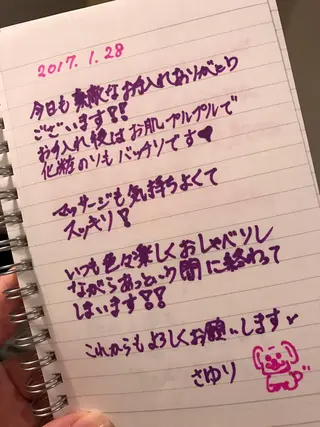 2017.1.28
今日も素敵なお手入れありがとう
ございます!!
お手入れ後はお肌プルプルで
化粧のりもバッチリです♥
マッサージも気持ちよくて
スッキリ!
いつも色々楽しくおしゃべりし
ながらあっという間に終わって
しまいます!!
これからもよろしくお願いします♥
さゆり